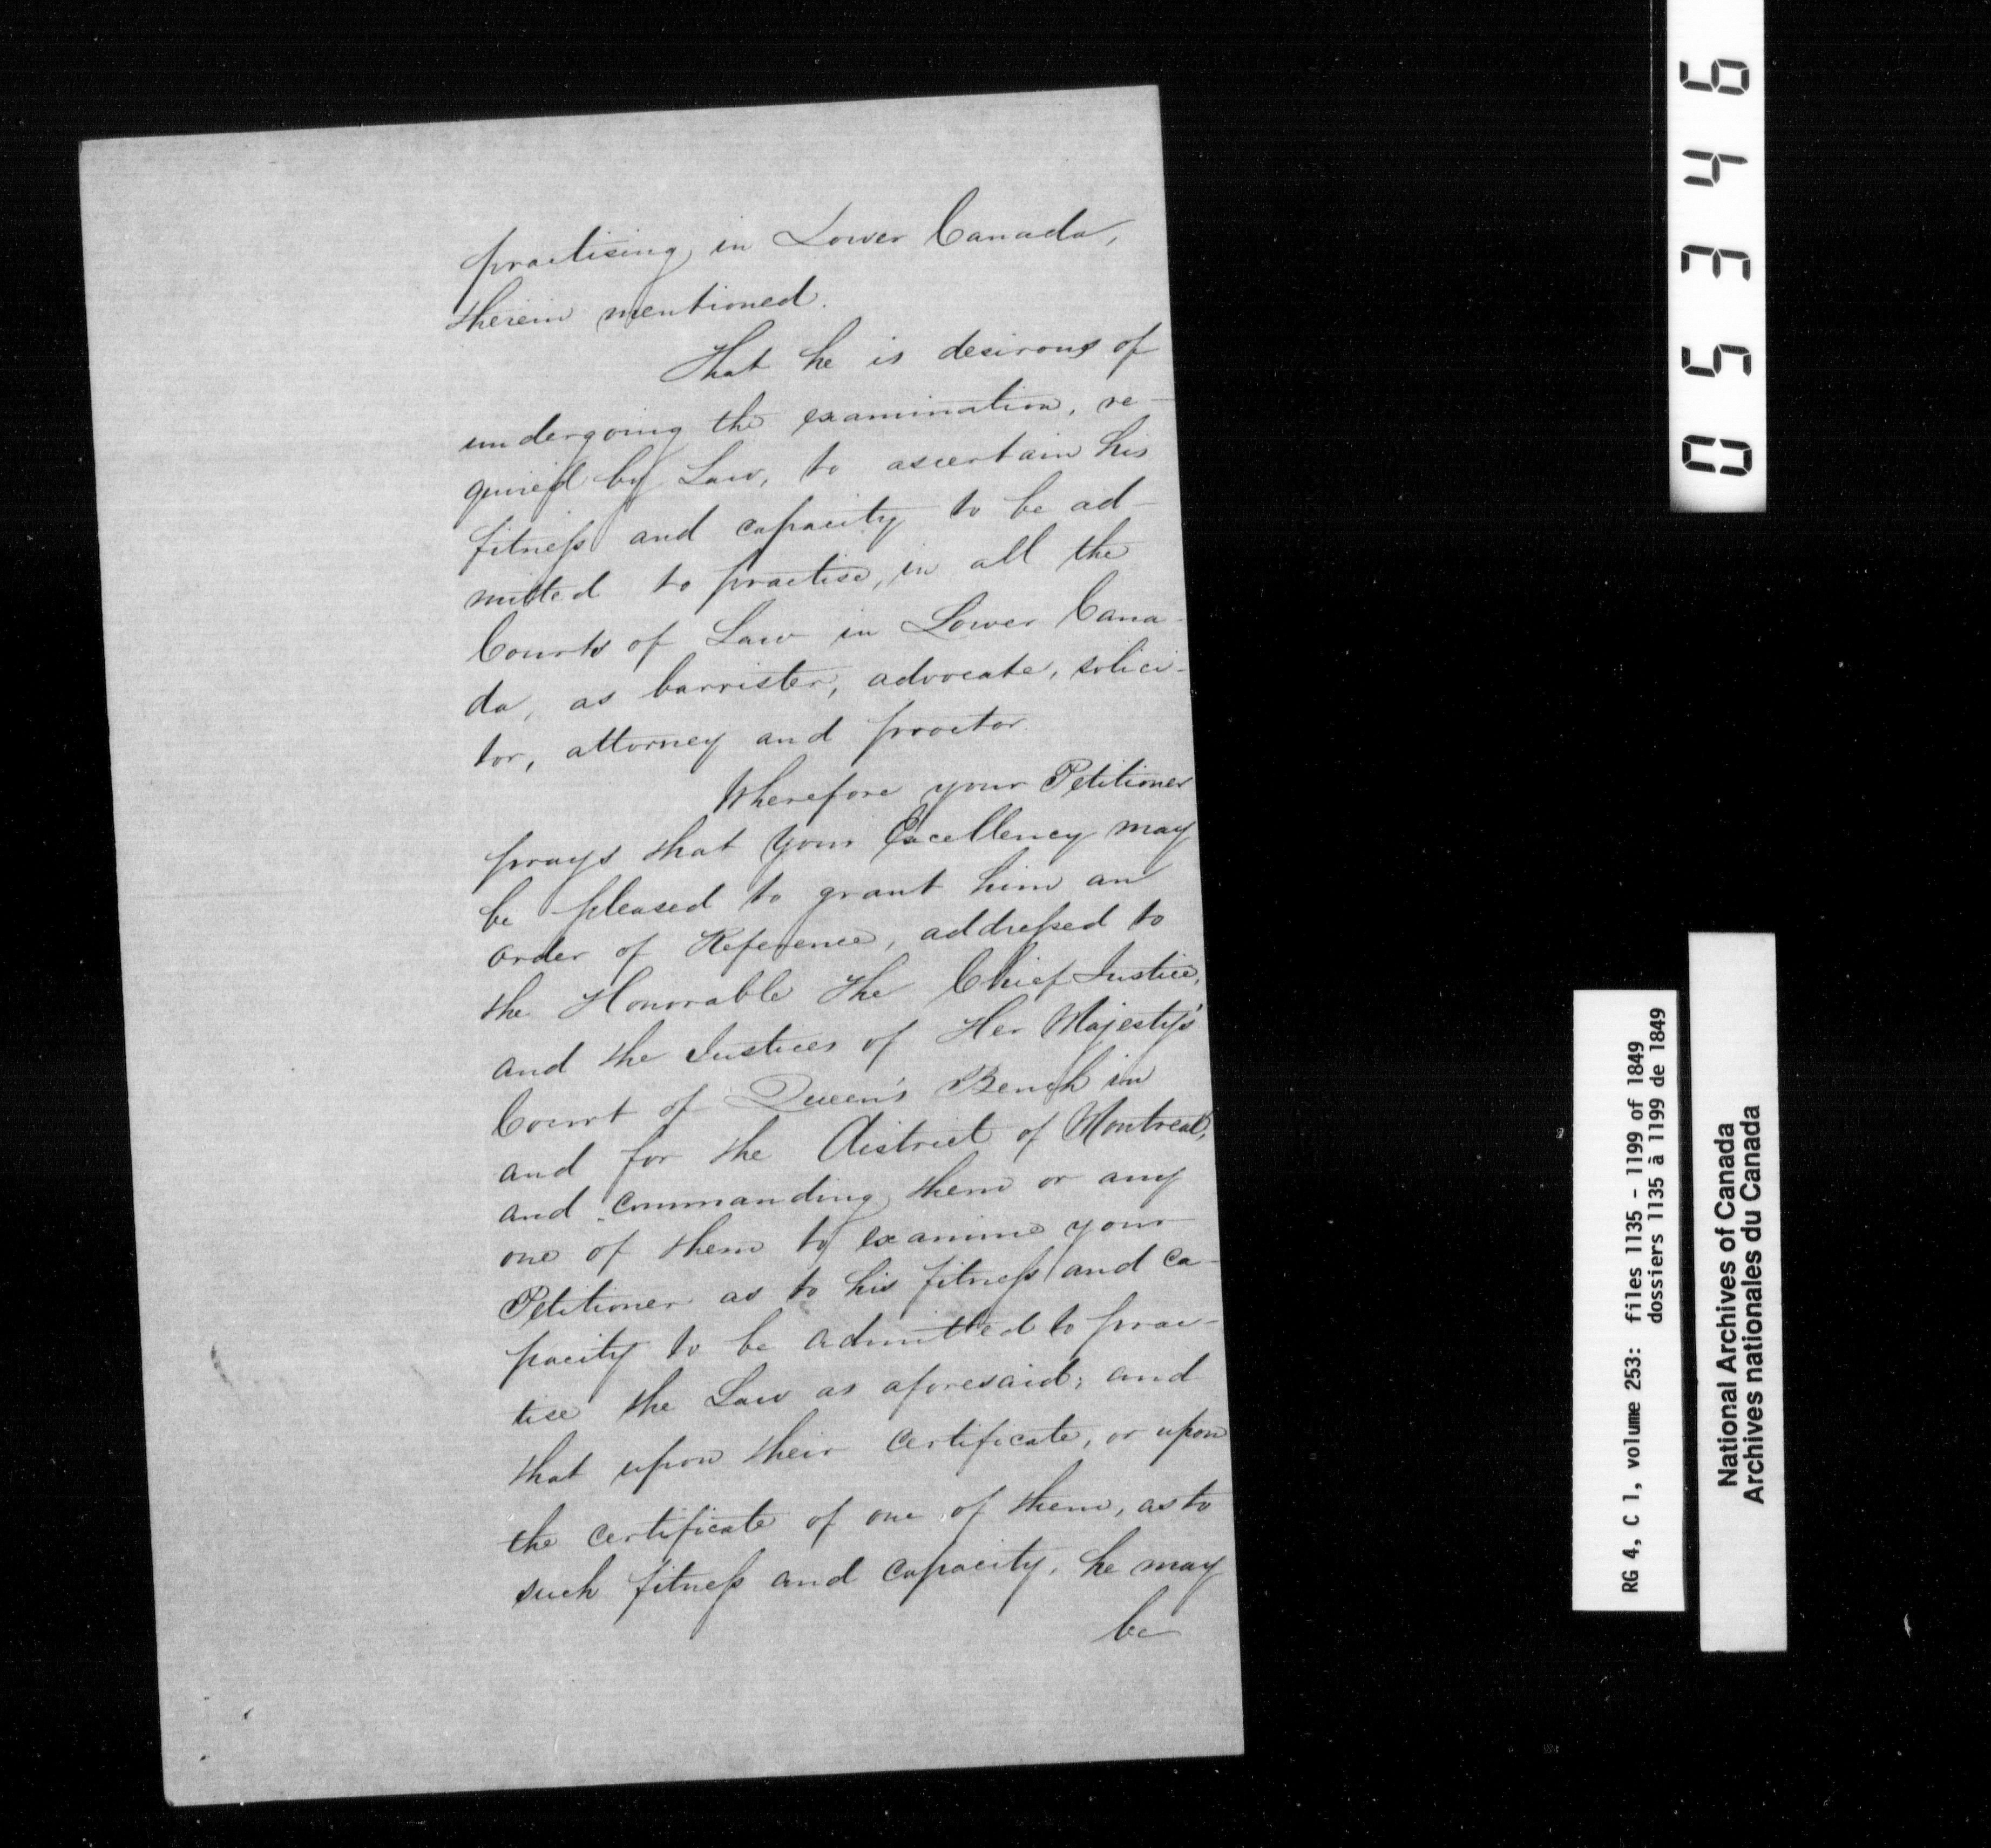 practising in Lower Canada,
therein mentioned.
That he is desirous of
undergoing the examination, re-
quired by Law, to ascertain his
fitness and capacity to be ad-
mitted to practise, in all the
Courts of Law in Lower Cana-
da, as barrister, advocate, solici-
tor, attorney and proctor.
Wherefore your Petitioner
prays that your Excellency may
be pleased to grant him an
order of Reference, addressed to
the Honorable The Chief Justice,
and the Justices of Her Majesty's
Court of Queen's Bench in
and for the District of Montreal,
and commanding them or any
one of them to examine your
Petitioner as to his fitness and ca-
pacity to be admitted to prac-
tise the Law as aforesaid; and
that upon their certificate, or upon
the certificate of one of them, as to
such fitness and capacity, he may
be
05346
RG 4, C 1, volume 253: files 1135 - 1199 of 1849
dossiers 1135 à 1199 de 1849
National Archives of Canada
Archives nationales du Canada